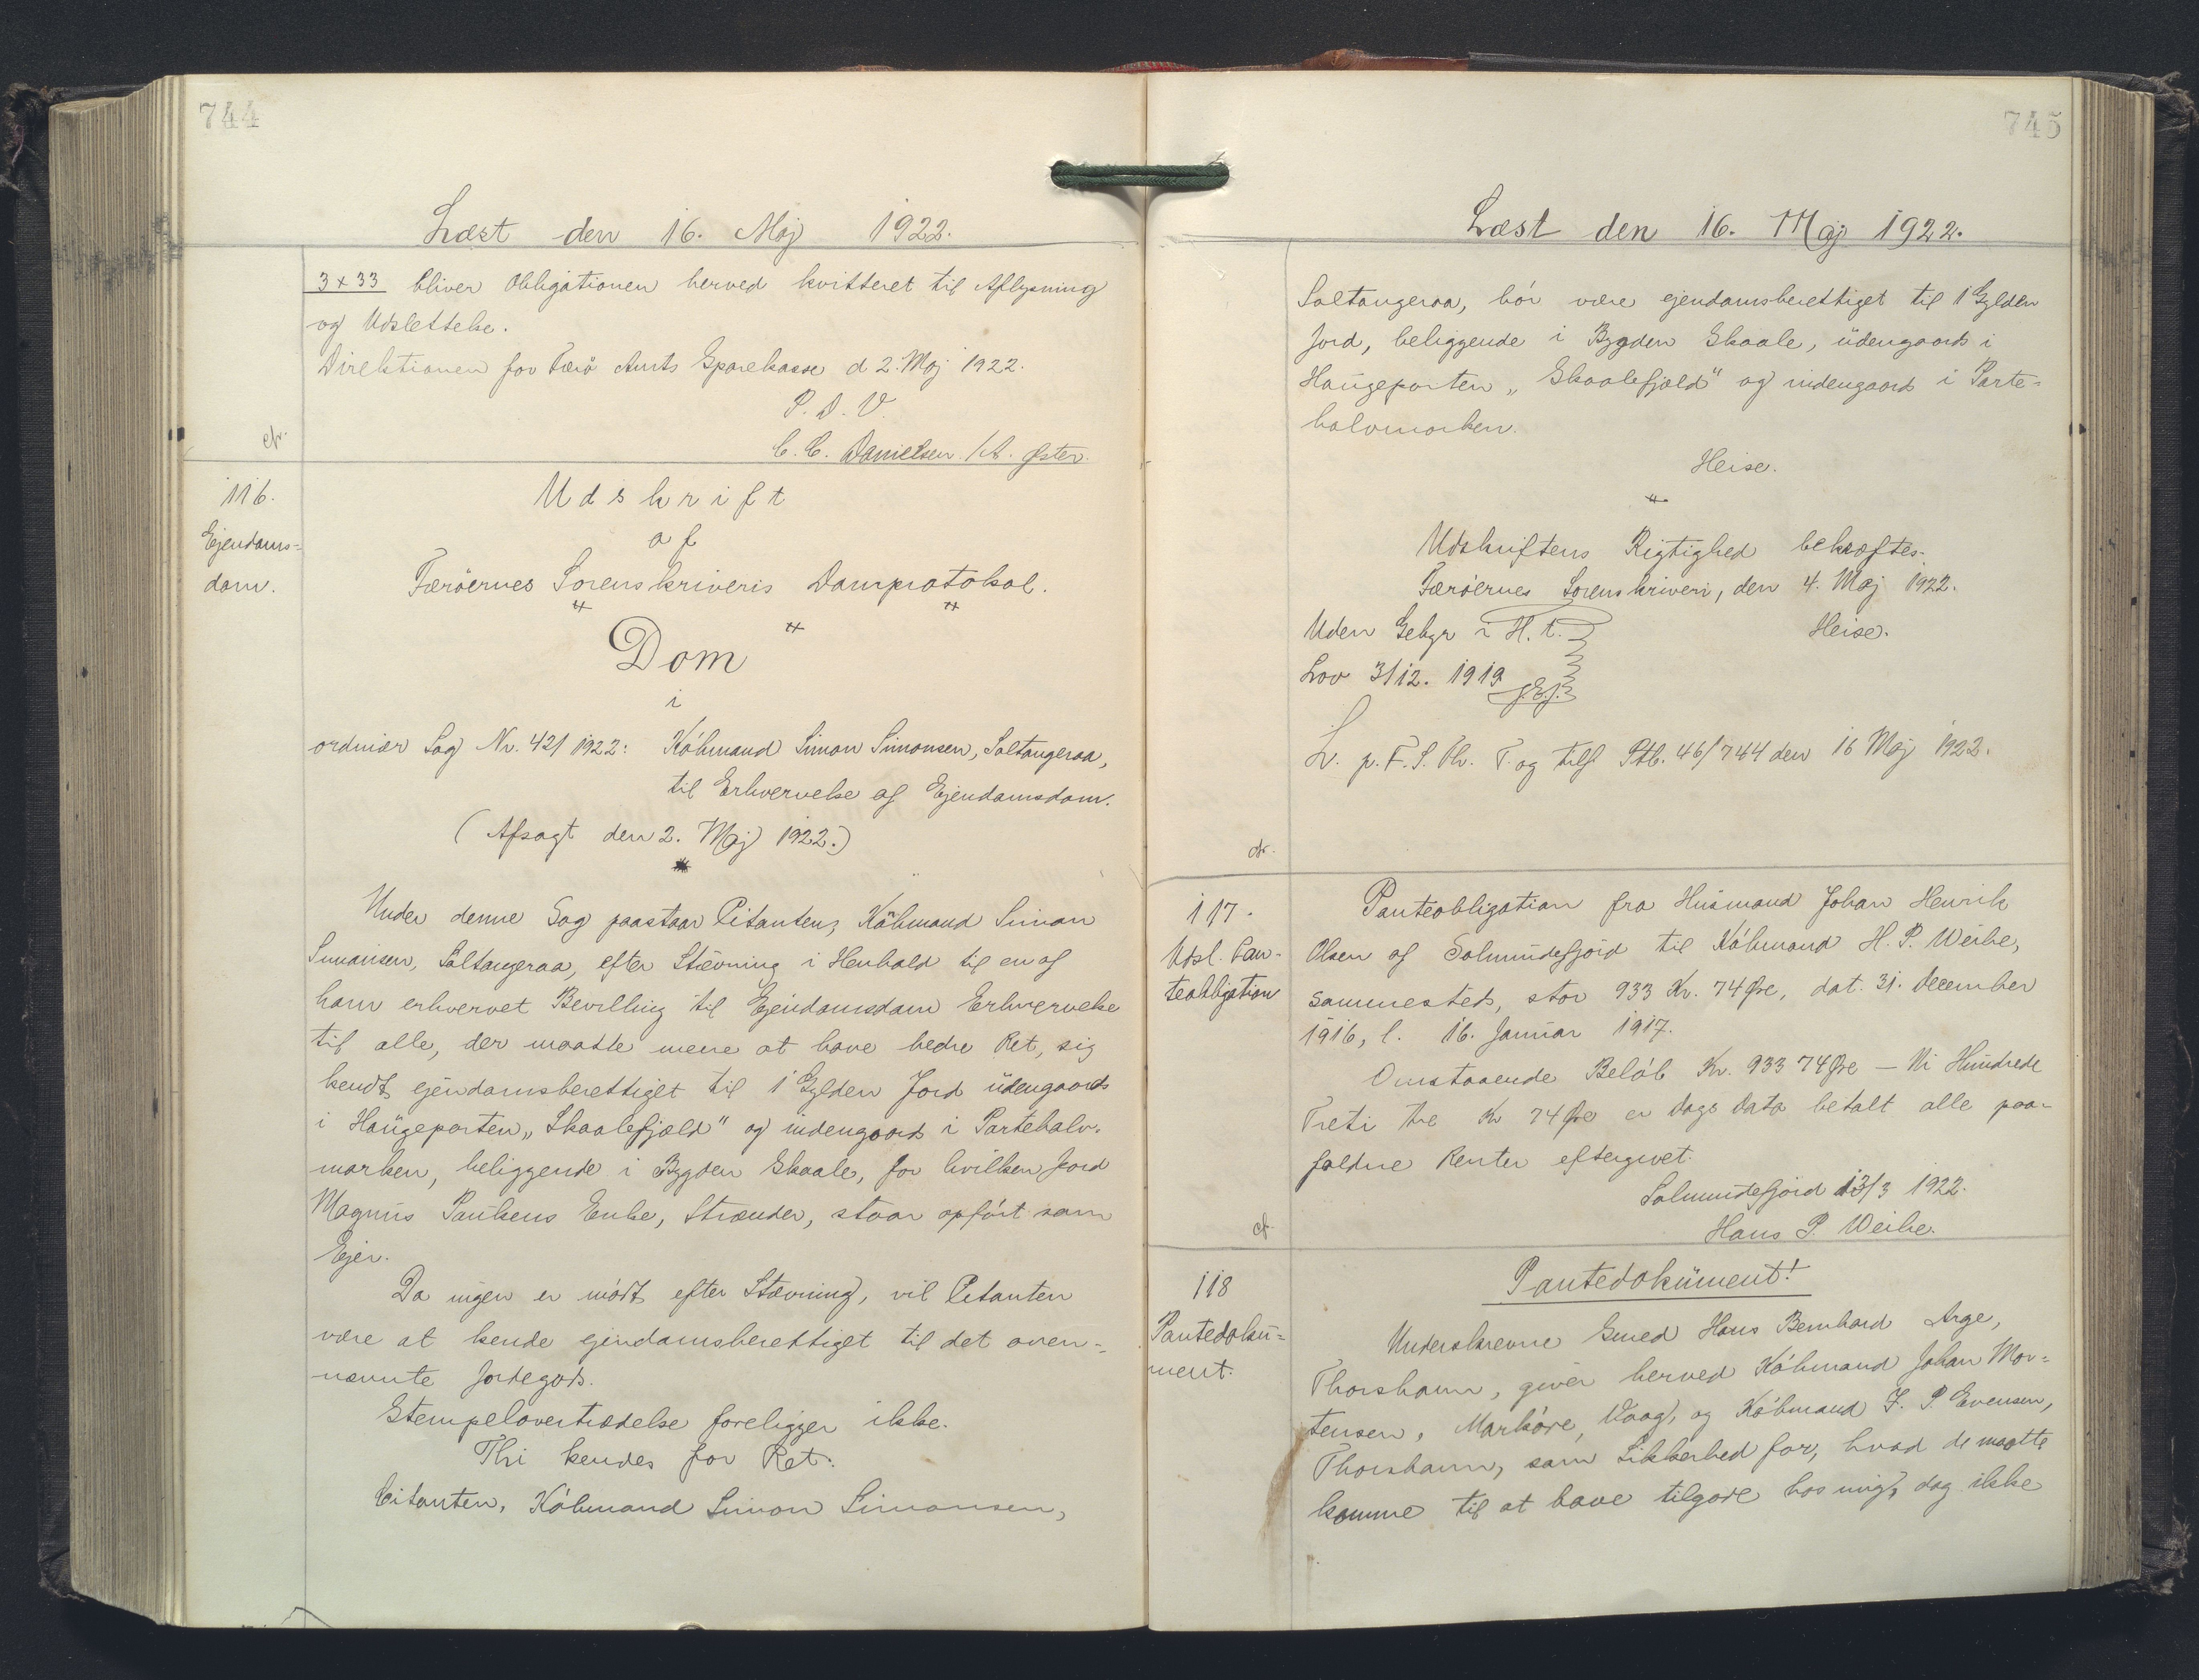 744
Læst den 16. Maj 1922.
3 x 33 bliver Obligationen herved kvitteret til Aflysning
og Udslettelse.
Direktionen for Færø Amts Sparekasse d 2. Maj 1922.
P. D. V.
C. C. Danielsen. /A. Øster.
cfr.
116.
Ejendoms-
dom.
Udskrift
af
Færöernes Sorenskriveris Domprotokol.
Dom
i
ordinær Sag Nr. 42/1922: Köbmand Simon Simonsen, Saltangeraa,
til Erhvervelse af Ejendomsdom.
(Afsagt den 2. Maj 1922.)
Under denne Sag paastaar Citanten, Köbmand Simon
Simonsen, Saltangeraa, efter Stævning i Henhold til en af
ham erhvervet Bevilling til Ejendomsdom Erhvervelse
til alle, der maatte mene at have bedre Ret, sig
kendt ejendomsberettiget til 1 Gylden Jord udengaards
i Haugeparten „Skaalefjæld" og indengaards i Partehalv-
marken, beliggende i Bygden Skaale, for hvilken Jord
Magnus Paulsens Enke, Strænder, staar opfört som
Ejer.
Da ingen er mödt efter Stævning, vil Citanten
være at kende ejendomsberettiget til det oven-
nævnte Jordegods.
Stempelovertrædelse foreligger ikke.
Thi kendes for Ret:
Citanten, Köbmand Simon Simonsen,
745
Læst den 16. Maj 1922.
Saltangeraa, bör være ejendomsberettiget til 1 Gylden
Jord, beliggende i Bygden Skaale, udengaards i
Haugeparten „Skaalefjæld" og indengaards i Parte-
halvmarken.
Heise.
Udskriftens Rigtighed bekræftes.
Færöernes Sorenskriveri, den 4. Maj 1922.
Uden Gebyr i H. t.
Heise.
Lov 3/12. 1919
J.E.J.
L. p. F. S. Th. T. og tilf Ptb. 46/744 den 16 Maj 1922.
cfr.
117.
Udsl. Pan-
teobligation
Panteobligation fra Husmand Johan Henrik
Olsen af Solmundefjord til Köbmand H. P. Weihe,
sammesteds, stor 933 Kr. 74 Øre, dat. 31. December
1916, l. 16. Januar 1917.
Omstaaende Belöb Kr. 933 74 Øre – Ni Hundrede
Treti tre Kr 74 Øre er Dags Dato betalt alle paa-
faldne Renter eftergivet.
Solmundefjord 13/3 1922.
Hans P. Weihe.
cf.
118
Pantedoku-
ment.
Pantedokument!
Underskrevne Smed Hans Bernhard Arge,
Thorshavn, giver herved Köbmand Johan Mor-
tensen, Marköre, Vaag, og Köbmand J. P. Evensen,
Thorshavn, som Sikkerhed for, hvad de maatte
komme til at have tilgode hos mig, dog ikke